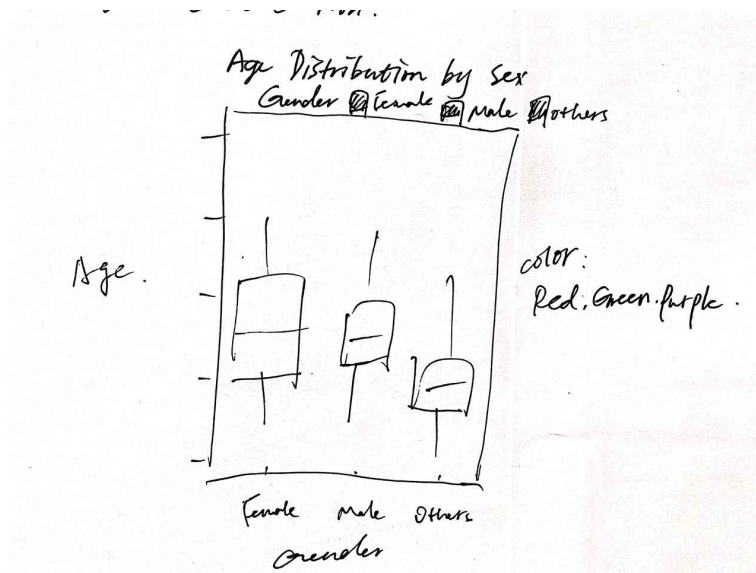 Age Distribution by Sex
Gender Female Male Others
Age.
color:
Red. Green. Purple.
Female Male Others
Gender